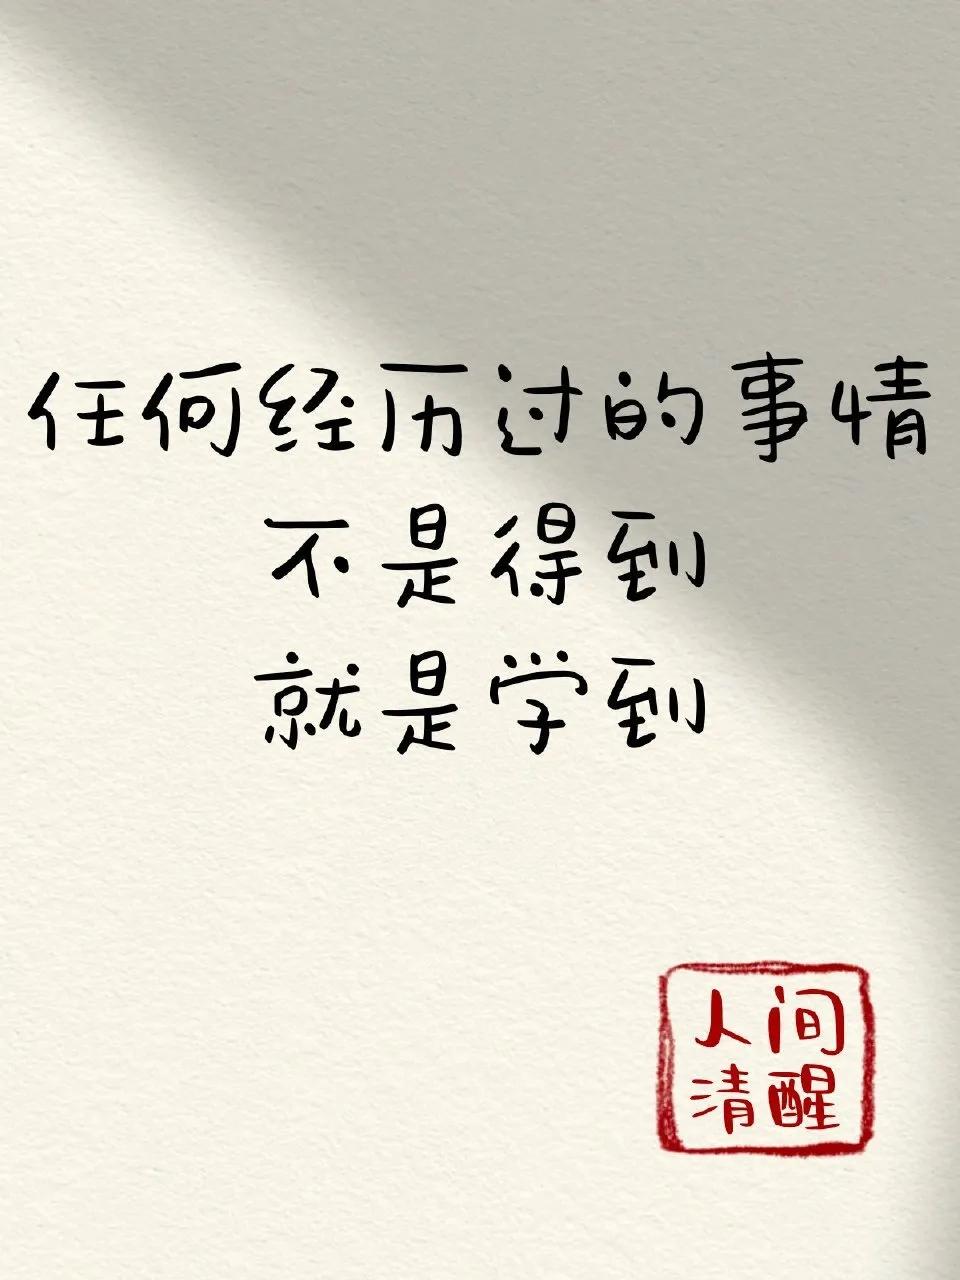 任何经历过的事情
不是得到
就是学到
人间
清醒